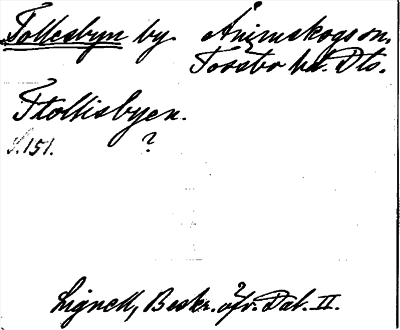 Tollesbyn by Ånimskogs sn.
Tössbo hd. Dls.
Ttollisbyen.
S. 151. ?
Lignell, Beskr. öfv. Dal. II.